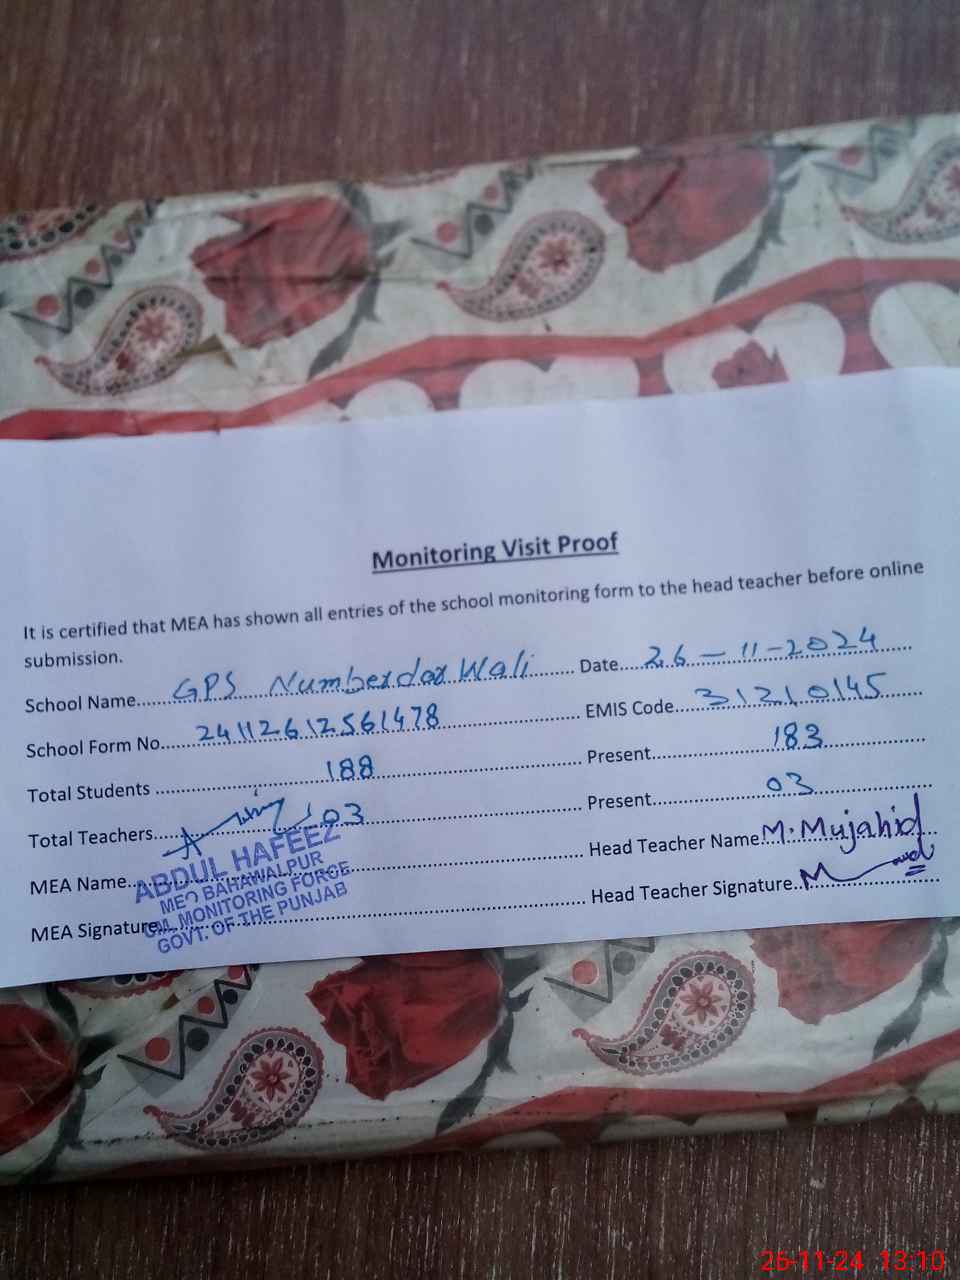 Monitoring Visit Proof
It is certified that MEA has shown all entries of the school monitoring form to the head teacher before online
submission.
School Name......GPS Numberdar Wali...... Date....26-11-2024......
School Form No......24112612561478...... EMIS Code....31210145......
Total Students ......188...... Present......183......
Total Teachers......03...... Present......03......
MEA Name...... Head Teacher Name..M. Mujahid...
MEA Signature...... Head Teacher Signature......
ABDUL HAFEEZ
MEO BAHAWALPUR
CM. MONITORING FORCE
GOVT. OF THE PUNJAB
26-11-24 13:10